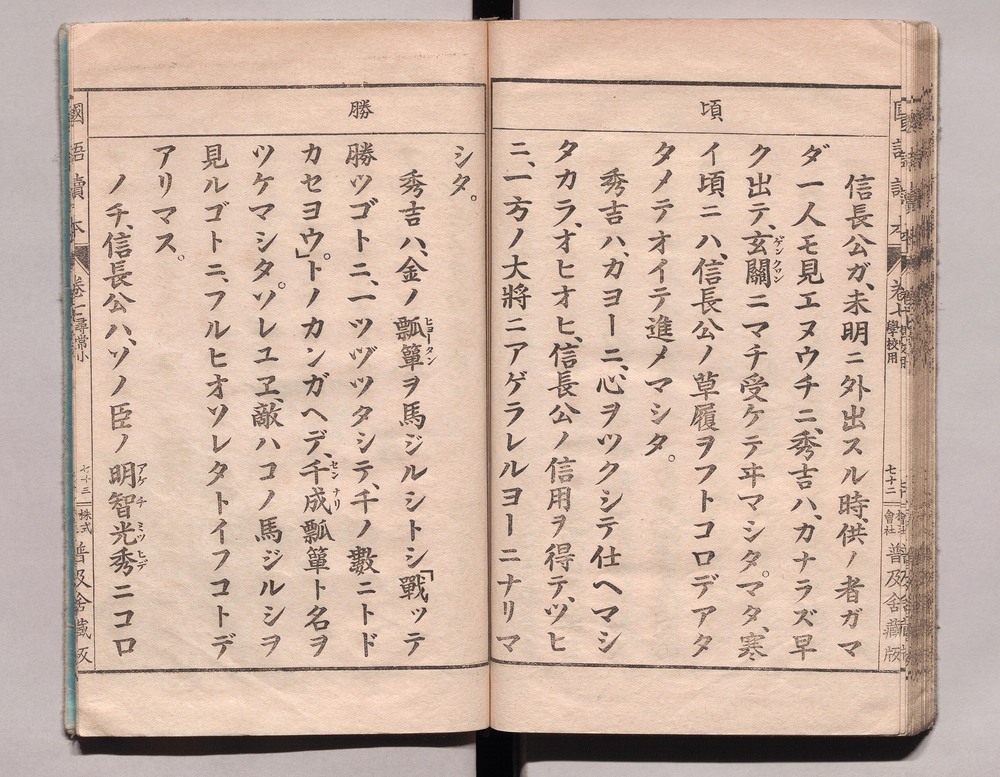 頃
信長公ガ、未明ニ外出スル時、供ノ者ガマ
ダ一人モ見エヌウチニ、秀吉ハ、カナラズ早
ク出テ、玄關ニマチ受ケテヰマシタ。マタ、寒
イ頃ニハ、信長公ノ草履ヲフトコロデアタ
タメテオイテ進メマシタ。
秀吉ハ、カヨーニ、心ヲツクシテ仕ヘマシ
タカラ、オヒオヒ、信長公ノ信用ヲ得テ、ツヒ
ニ、一方ノ大將ニアゲラレルヨーニナリマ
七十二
會社 普及舍藏版
勝
シタ。
秀吉ハ、金ノ瓢簞ヲ馬ジルシトシ、「戰ッテ
勝ツゴトニ、一ツヅツタシテ、千ノ數ニトド
カセヨウ」。トノカンガヘデ、千成瓢簞ト名ヲ
ツケマシタ。ソレユヱ、敵ハコノ馬ジルシヲ
見ルゴトニ、フルヒオソレタトイフコトデ
アリマス。
ノチ、信長公ハ、ソノ臣ノ明智光秀ニコロ
國語讀本 卷七 尋常小
七十三
株式 普及舍藏版